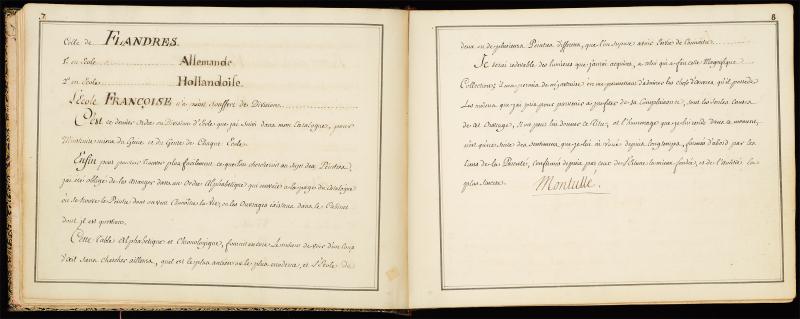 7.
Celle de FLANDRES.
1.º en Ecole Allemande
2.º en Ecole Hollandoise
L'Ecole FRANÇOISE n'a point souffert de Divisions
C'est ce dernier Ordre ou Division d'Ecole que j'ai Suivi dans mon Catalogue, pour
l'instruire mieux du Genre et du Genie de Chaque Ecole.
Enfin pour pouvoir trouver plus facilement ce que l'on cherchera au Sujet des Peintres,
j'ai été obligé de les arranger dans un Ordre Alphabétique qui renvoie a la page du Catalogue
ou se trouve le Peintre dont on veut Connoître la Vie, ou les Ouvrages existens dans le Cabinet
dont il est question.
Cette Table Alphabetique et Chronologique, fournit encore le moien de voir d'un coup
d'œil sans chercher ailleurs, quel est le plus ancien ou le plus moderne, et l'Ecole de
8
deux ou de plusieurs Peintres differens, que l'on Supose avoir Envie de Connoitre
Je serai redevable des lumieres que j'aurai acquises, a celui qui a fait cette Magnifique
Collection; il me permis de m'instruire en me permettant d'admirer les chefs d'œuvres qu'il possede
Les moiens que j'ai pris pour parvenir a profiter de sa Complaisance, sont les seules causes
de cet Ouvrage, Il me pour lui donner ce Titre, et l'hommage que je lui rends dans ce moment,
n'est qu'une suite des sentimens que je lui ai voués depuis longtemps, formés d'abord par les
Liens de la Parenté, confirmés depuis par ceux de l'Estime la mieux fondée, et de l'Amitié la
plus sincere. Montullé.